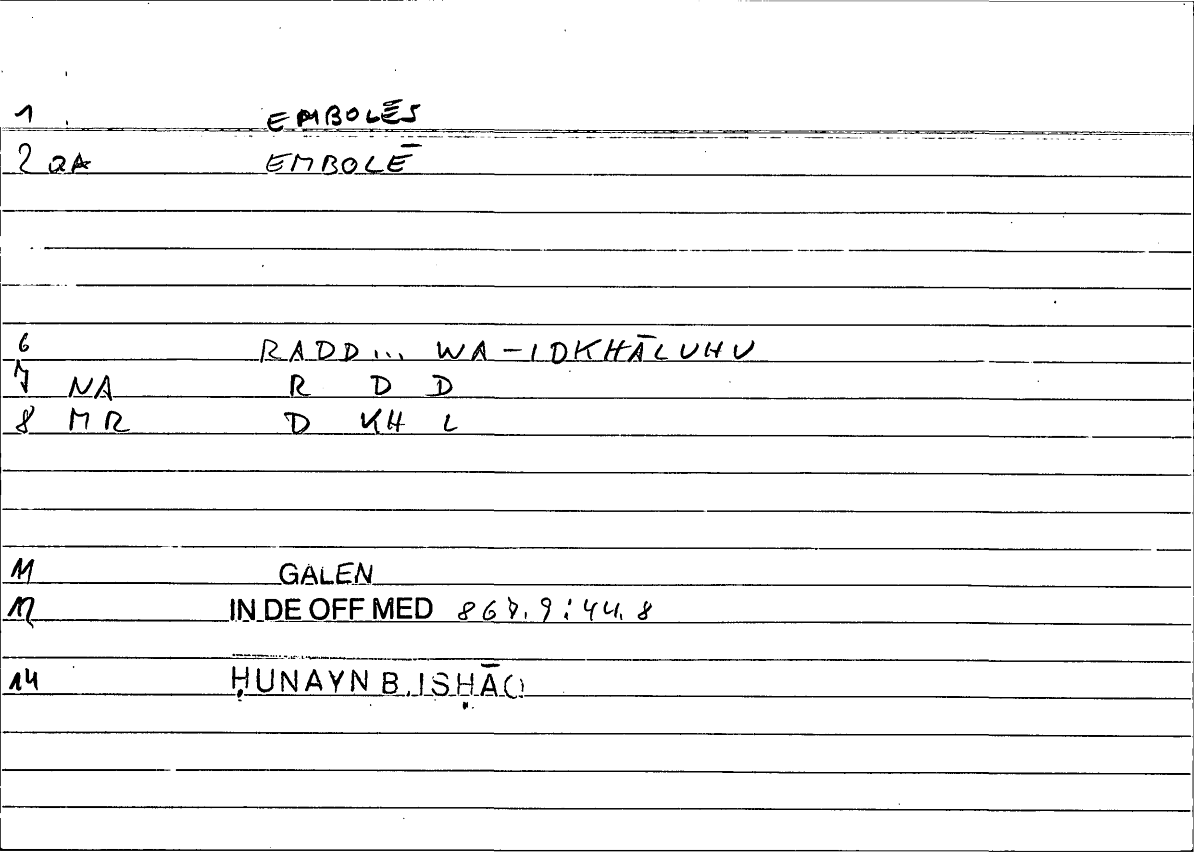 1 EMBOLĒS
2 QA EMBOLĒ
6 RADD... WA-IDKHĀLUHU
7 NA R D D
8 MR D KH L
11 GALEN
12 IN DE OFF MED 867.9:44.8
14 ḤUNAYN B. ISḤĀQ